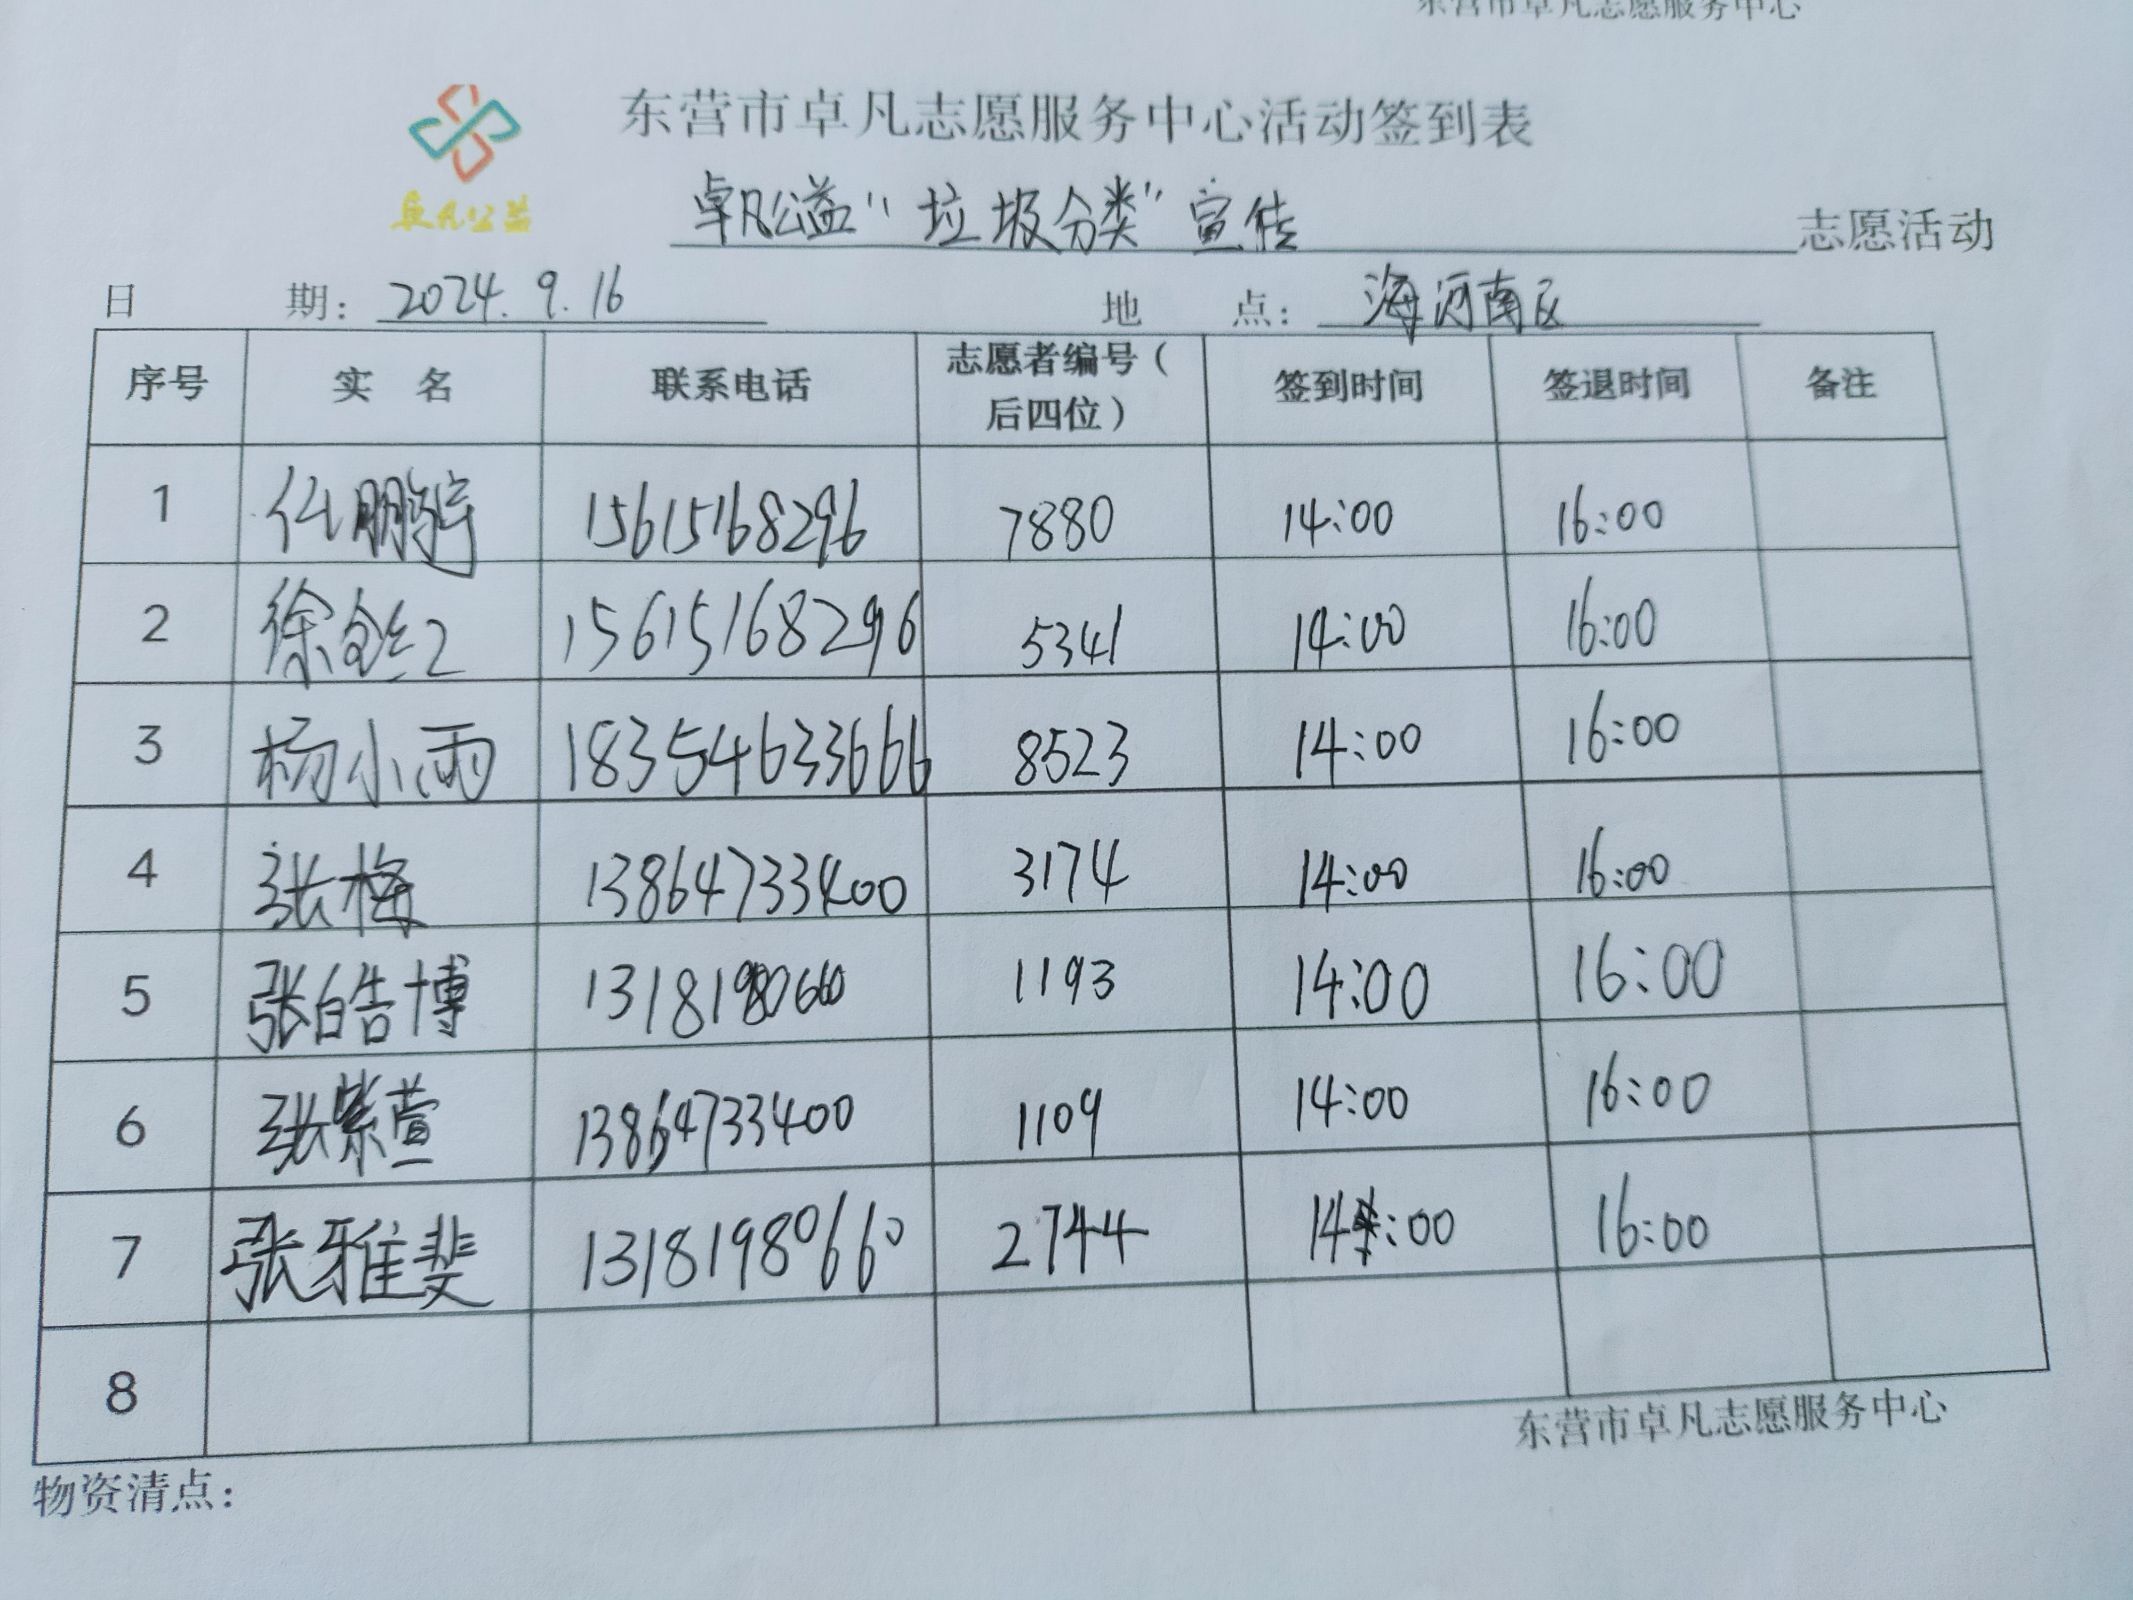 东营市卓凡志愿服务中心
东营市卓凡志愿服务中心活动签到表
卓凡公益
卓凡公益“垃圾分类”宣传 志愿活动
日 期: 2024.9.16 地 点: 海河南区
序号 实 名 联系电话 志愿者编号(后四位) 签到时间 签退时间 备注
1 仏鹏宇 15615168296 7880 14:00 16:00
2 徐红 15615168296 5341 14:00 16:00
3 杨小雨 18354633666 8523 14:00 16:00
4 张梅 13864733400 3174 14:00 16:00
5 张皓博 13181980660 1193 14:00 16:00
6 张紫萱 13864733400 1109 14:00 16:00
7 张雅斐 13181980660 2744 14:00 16:00
8
东营市卓凡志愿服务中心
物资清点: